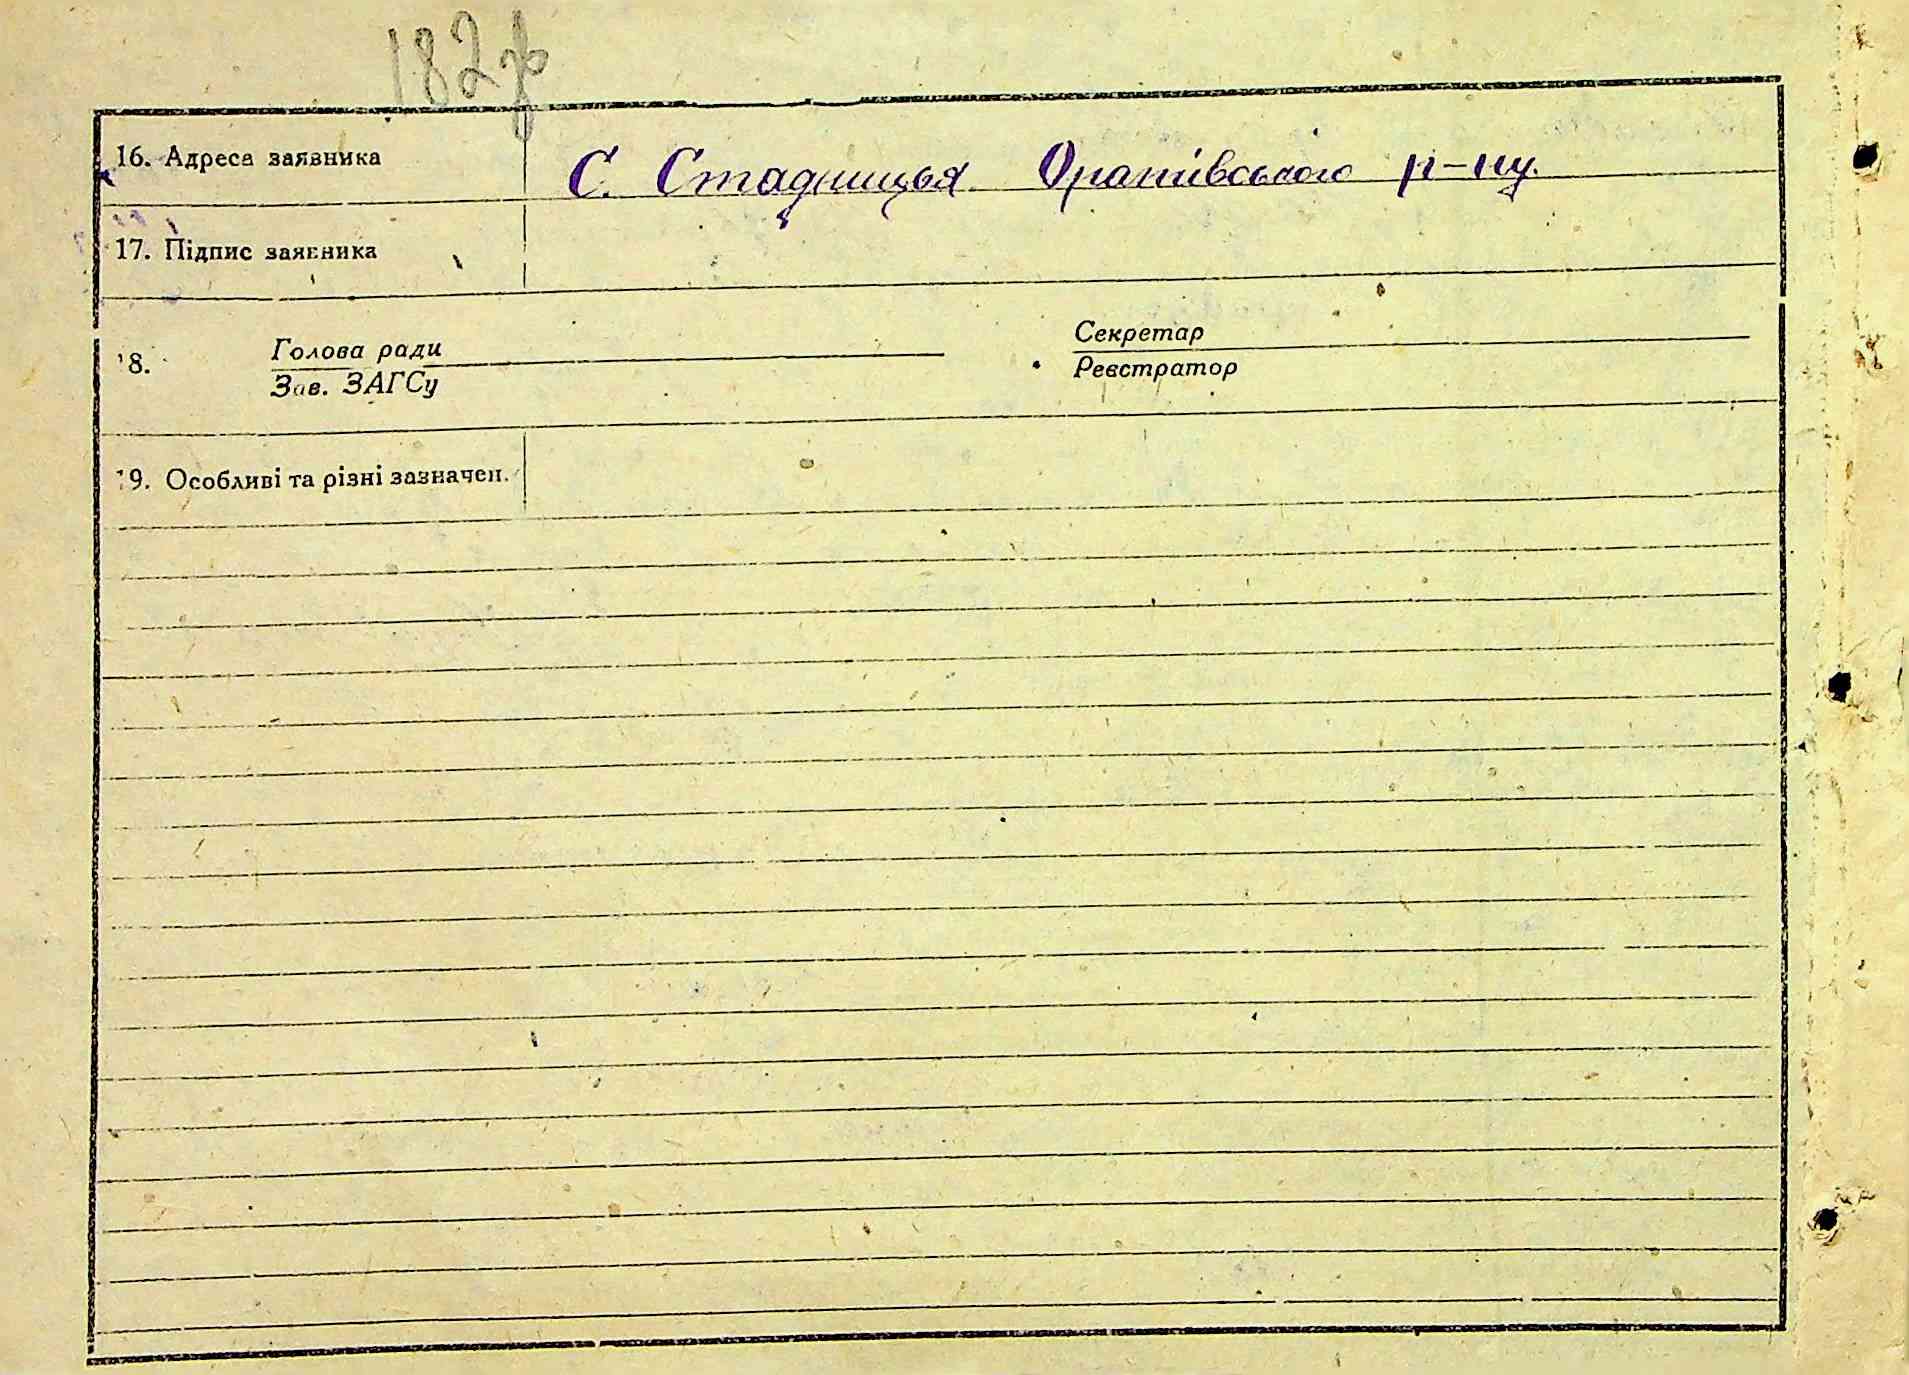 182зв
16. Адреса заявника С. Стадниця Оратівського р-ну.
17. Підпис заявника
18. Голова ради Секретар
Зав. ЗАГСу Реєстратор
19. Особливі та різні зазначен.